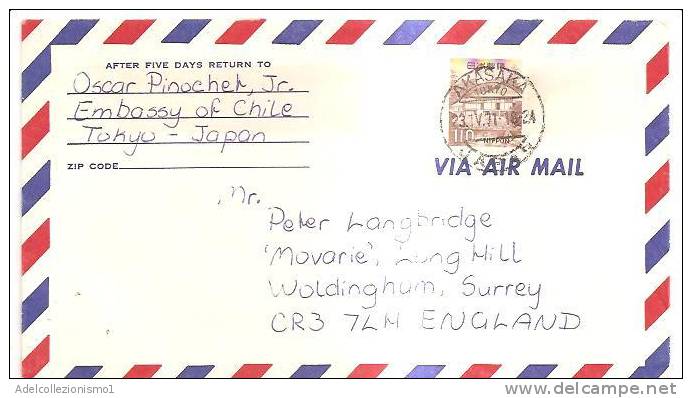 AFTER FIVE DAYS RETURN TO
Oscar Pinochet, Jr.
Embassy of Chile
Tokyo - Japan
ZIP CODE
AKASAKA
TOKYO
23.IV.71
110
NIPPON
JAPAN
VIA AIR MAIL
Mr.
Peter Langbridge
'Movarie', Lung Hill
Woldingham, Surrey
CR3 7LH ENGLAND
Adelcollezionismo1
delcampe.net